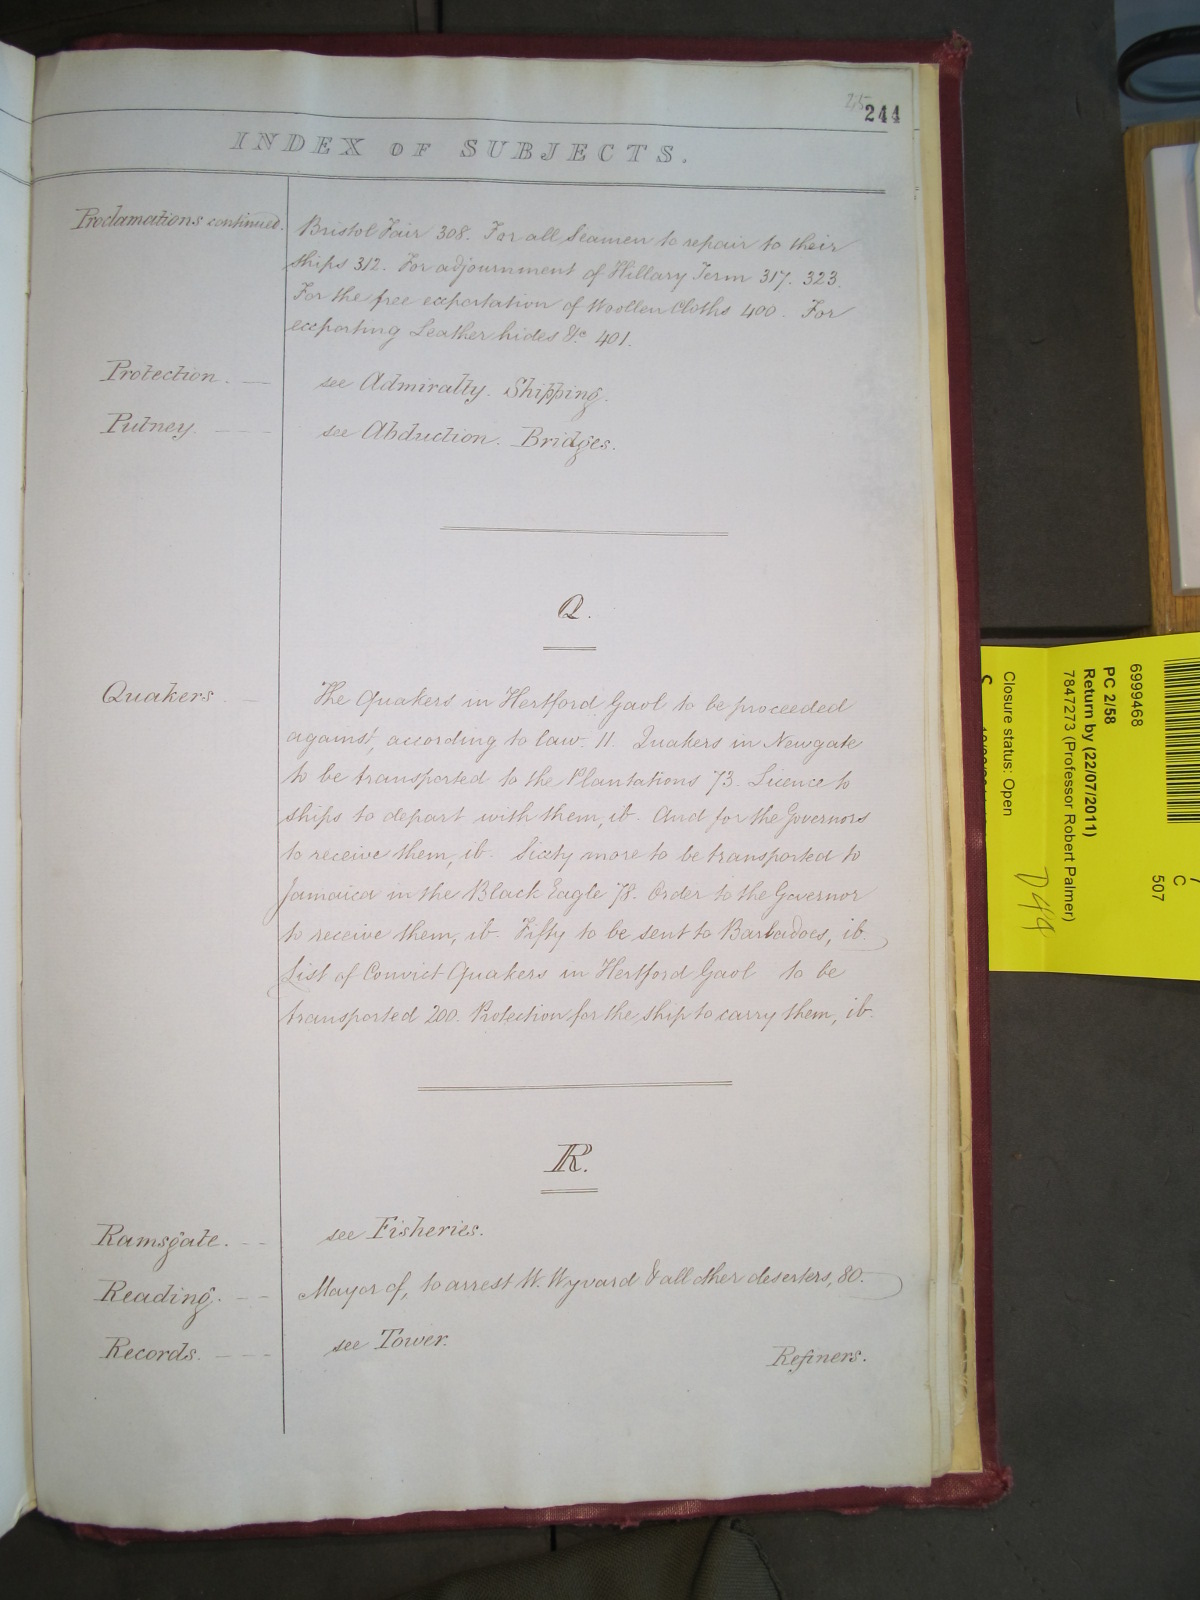 244
INDEX OF SUBJECTS.
Proclamations continued.
Bristol Fair 308. For all Seamen to repair to their
Ships 312. For adjournment of Hillary Term 317. 323.
For the free exportation of Woollen Cloths 400. For
exporting Leather hides &c 401.
Protection. — see Admiralty. Shipping.
Putney. — see Abduction. Bridges.
Q.
Quakers — The Quakers in Hertford Gaol to be proceeded
against, according to law. 11. Quakers in Newgate
to be transported to the Plantations 73. Licence to
ships to depart with them, ib. And for the Governors
to receive them, ib. Sixty more to be transported to
Jamaica in the Black Eagle 78. Order to the Governor
to receive them, ib. Fifty to be sent to Barbadoes, ib.
List of Convict Quakers in Hertford Gaol to be
transported 200. Protection for the ship to carry them, ib.
R.
Ramsgate. -- see Fisheries.
Reading. -- Mayor of, to arrest W. Wyvard & all other deserters, 80.
Records. --- see Tower.
Refiners.
6999468
PC 2/58
Return by (22/07/2011)
7847273 (Professor Robert Palmer)
Closure status: Open
C
507
D49